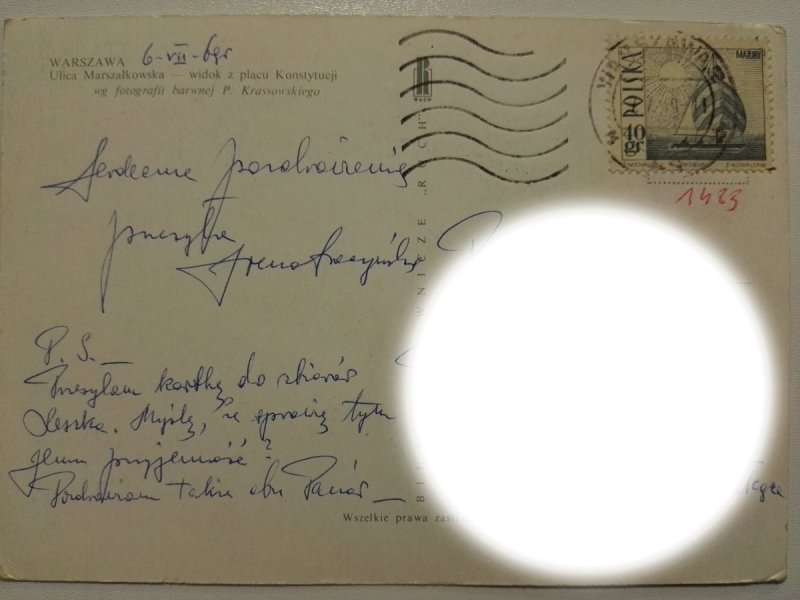 WARSZAWA 6-VII-69r
Ulica Marszałkowska — widok z placu Konstytucji
wg fotografii barwnej P. Krassowskiego
RUCH
POLSKA
MAZURY
40 gr
1423
Serdeczne pozdrowienia
przesyła
Irena
P. S. —
Przesyłam kartkę do zbiorów
Leszka. Myślę, że sprawię tym
Jemu przyjemność?
Pozdrawiam także obu Panów —
WNICZE „RUCH”
Wszelkie prawa zastrz